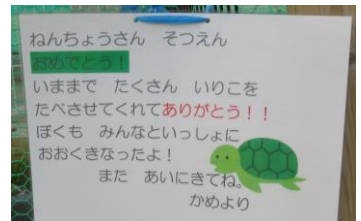 ねんちょうさん　そつえん
おめでとう！
いままで　たくさん　いりこを
たべさせてくれてありがとう！！
ぼくも　みんなといっしょに
おおくきなったよ！
また　あいにきてね。
かめより